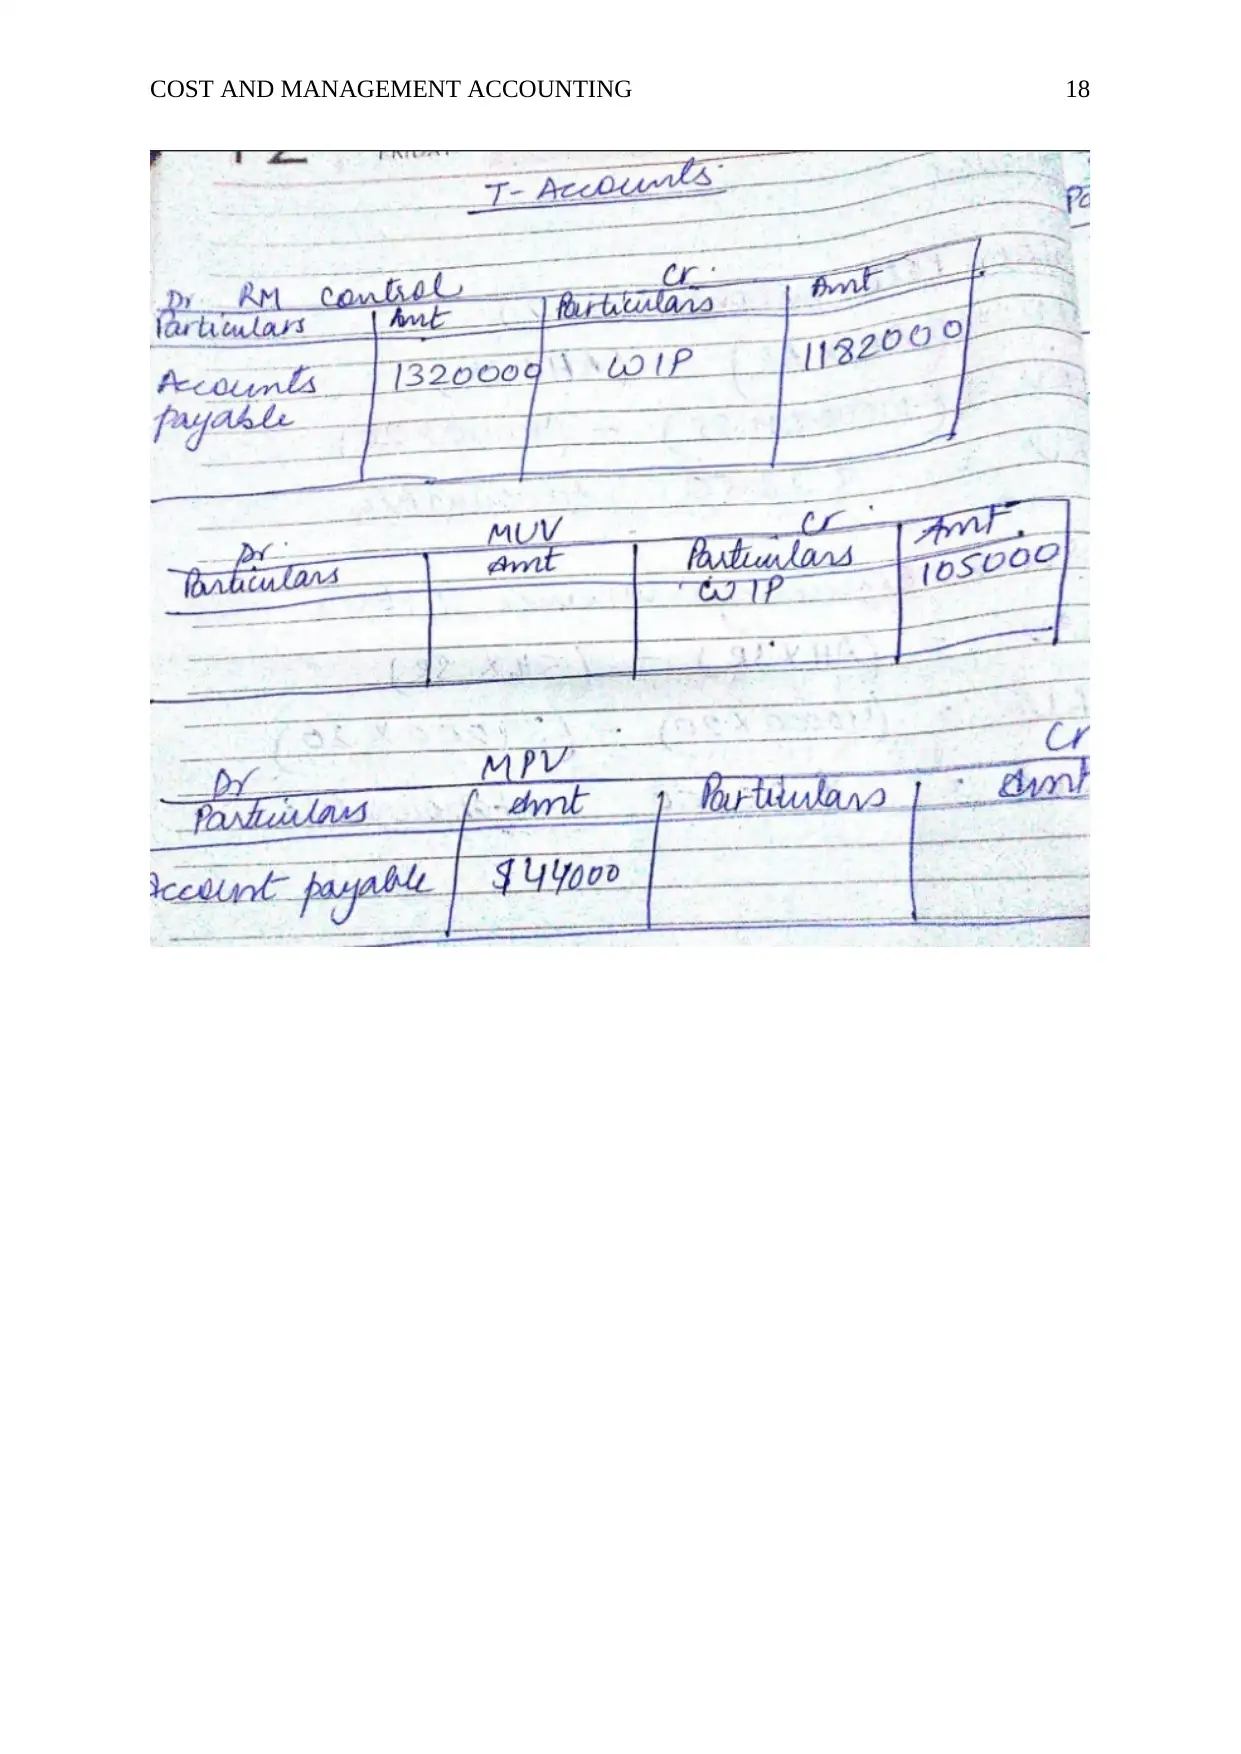 COST AND MANAGEMENT ACCOUNTING 18
T- Accounts
Dr. RM control Cr.
Particulars Amt Particulars Amt
Accounts 1320000 WIP 1182000
payable
Dr. MUV Cr.
Particulars Amt Particulars Amt.
WIP 105000
Dr MPV Cr
Particulars Amt Particulars Amt
Account payable $44000